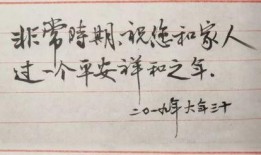 非常時期、祝您和家人
过一个平安祥和之年.
二〇一九年大年三十